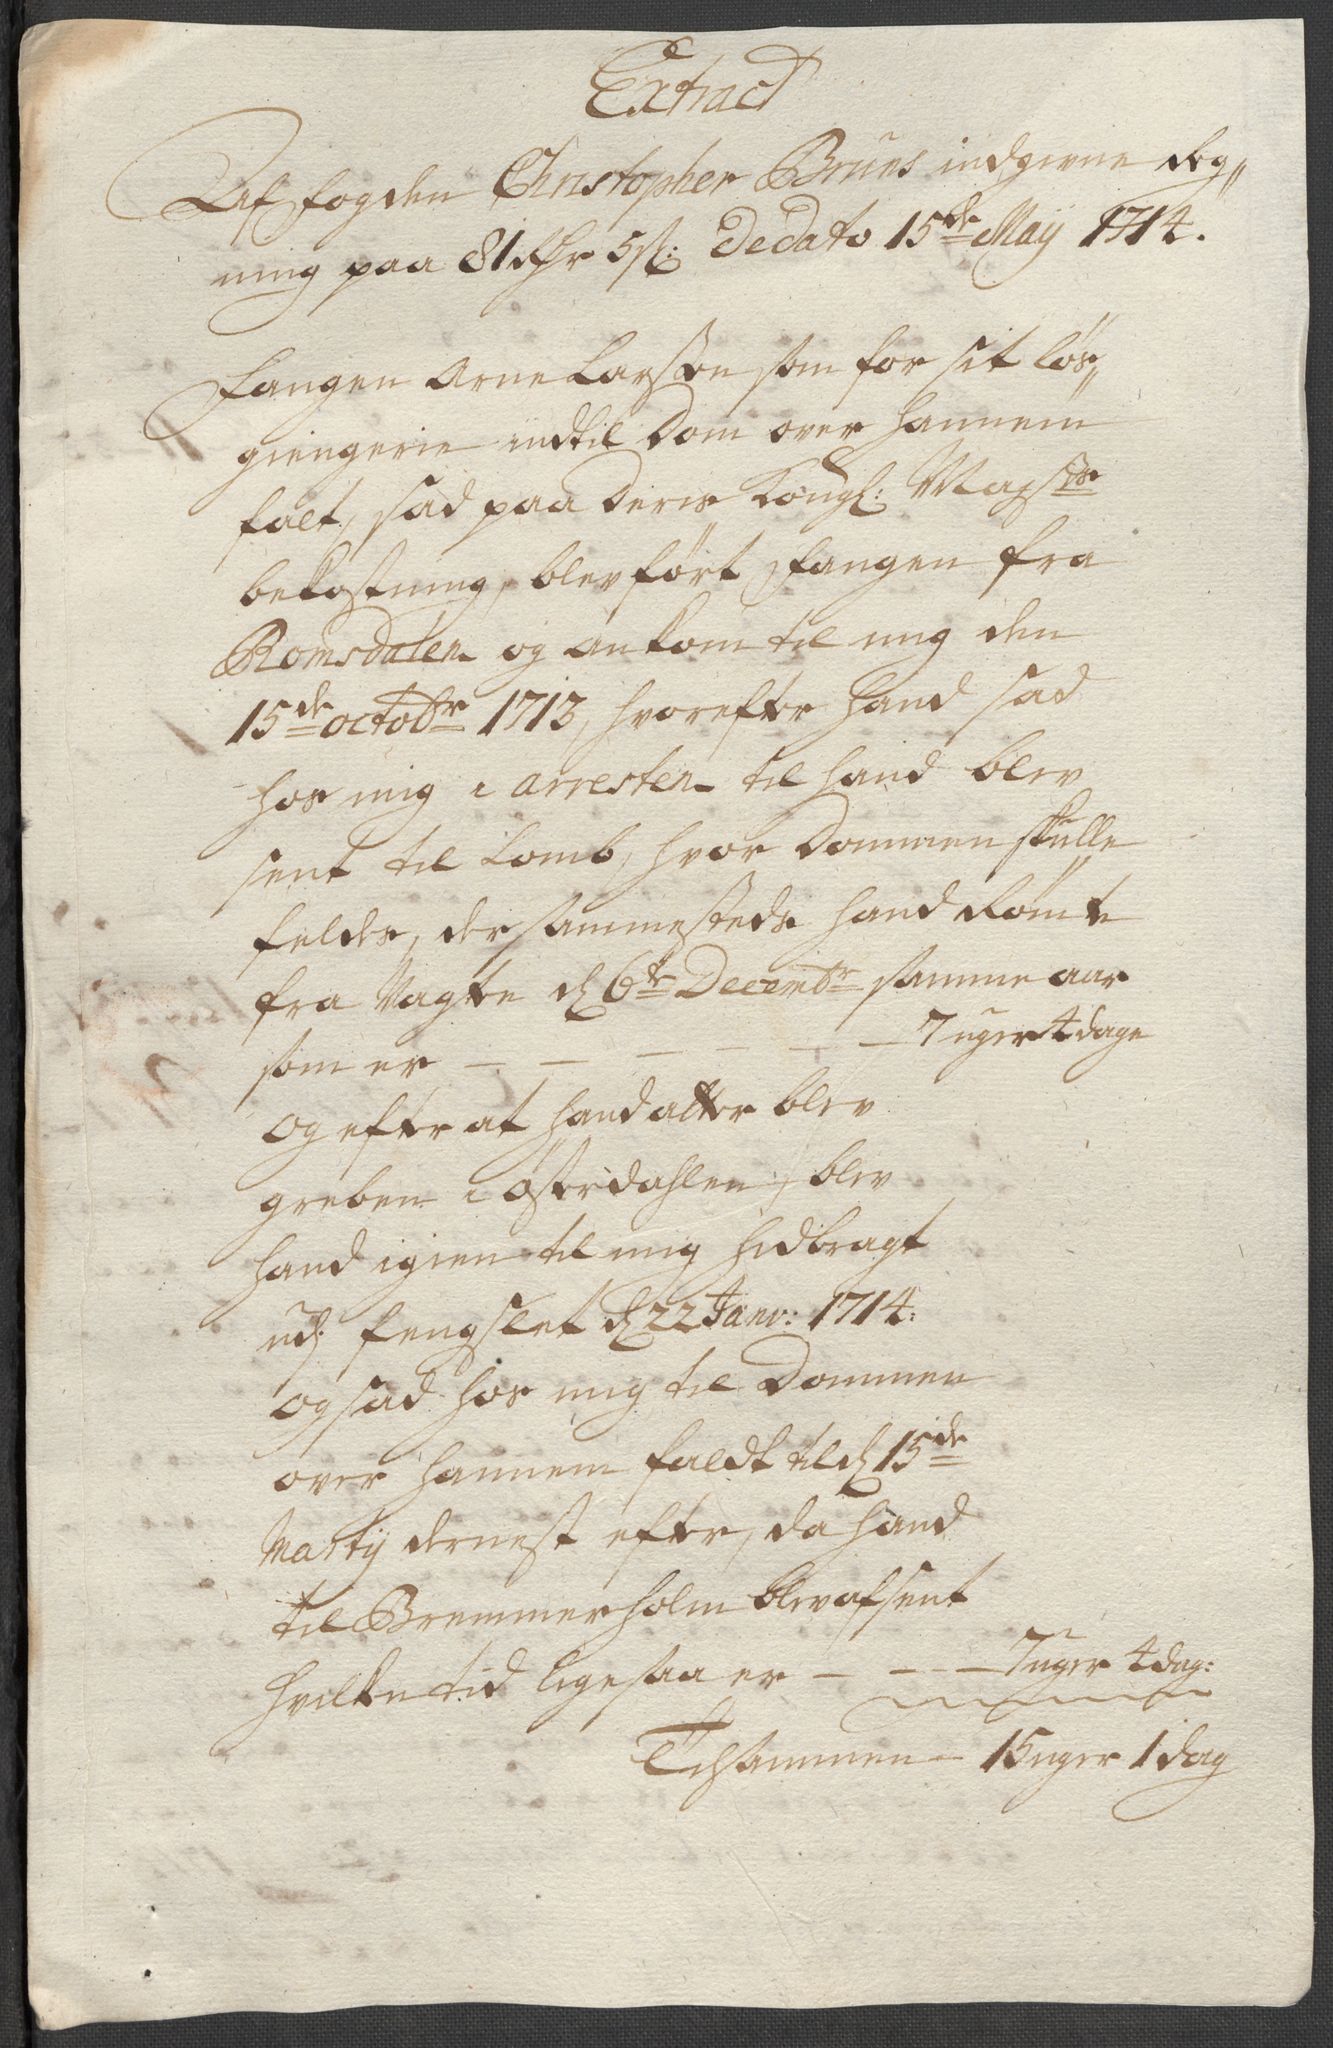 Extract
Af fogden Christopher Brües indgivne Reg„
ning paa 81 Rdr 5 s: Dedato 15de Maij 1714.
Fangen Arne Larssen som for sit løs„
giengerie indtil Dom over hannem
falt, sad paa Deris Kongl: Maysts
bekostning, blev ført fangen fra
Romsdalen og ankom til mig den
15de octobr 1713, hvorefter hand sad
hos mig i arresten til hand blev
sent til Lomb, hvor Dommen skulle
feldes, der sammesteds hand Rømte
fra Vagten d 6te Decembr samme aar
som er — — — — — — 7 uger 4 dage
og efter at hand atter blev
greben i Østerdahlen, blev
hand igien til mig hidbragt
udj fengslet d 22 Janv: 1714:
og sad hos mig til Dommen
over hannem faldt til d 15de
Martij dernest efter, da hand
til Bremmerholm blev afsent
hvilken tid ligesaa er — — — 7 uger 4 dag:
Tilsammen — 15 uger 1 dag